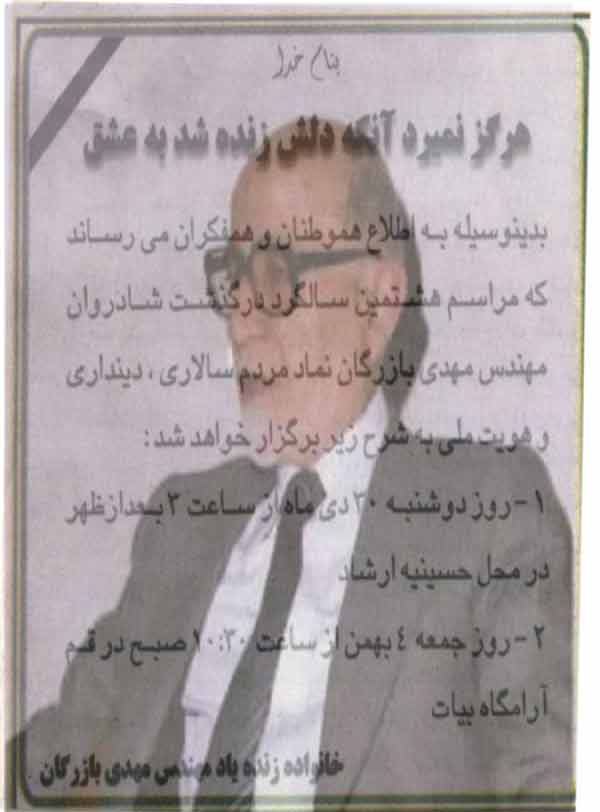 بنام خدا
هرگز نمیرد آنکه دلش زنده شد به عشق
بدینوسیله به اطلاع هموطنان و همفکران می رساند
که مراسم هشتمین سالگرد درگذشت شادروان
مهندس مهدی بازرگان نماد مردم سالاری ، دینداری
و هویت ملی به شرح زیر برگزار خواهد شد :
۱ - روز دوشنبه ۳۰ دی ماه از ساعت ۳ بعدازظهر
در محل حسینیه ارشاد
۲ - روز جمعه ٤ بهمن از ساعت ۱۰:۳۰ صبح در قم
آرامگاه بیات
خانواده زنده یاد مهندس مهدی بازرگان